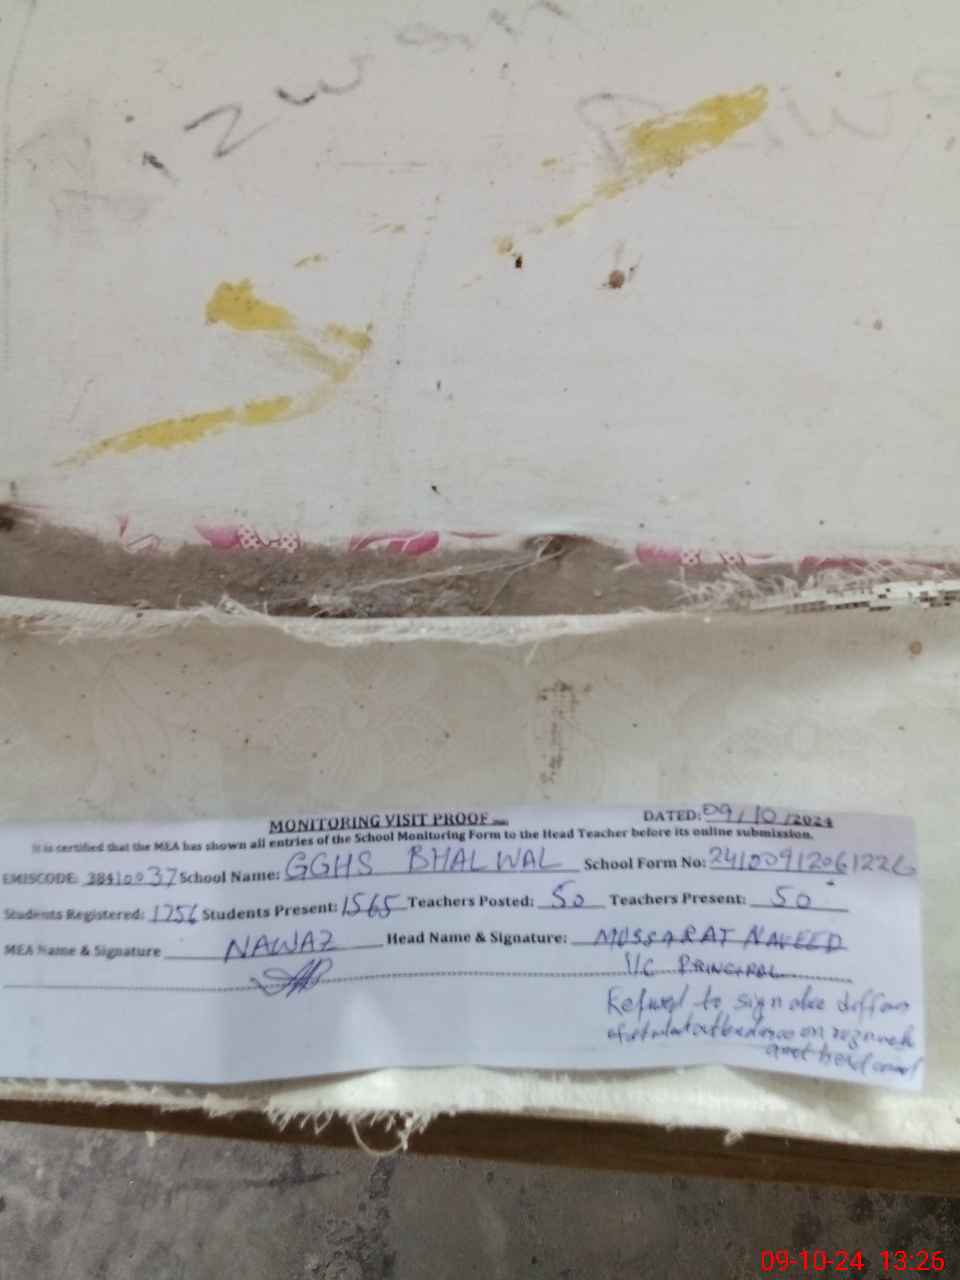 MONITORING VISIT PROOF
DATED: 09/10/2024
It is certified that the MEA has shown all entries of the School Monitoring Form to the Head Teacher before its online submission.
EMISCODE: 38410037 School Name: GGHS BHALWAL School Form No:
Students Registered: 1756 Students Present: 1565 Teachers Posted: 50 Teachers Present: 50
MEA Name & Signature NAWAZ Head Name & Signature: MUSSARAT NAVEED
I/C PRINCIPAL
Refused to sign
on
and head count
09-10-24 13:26